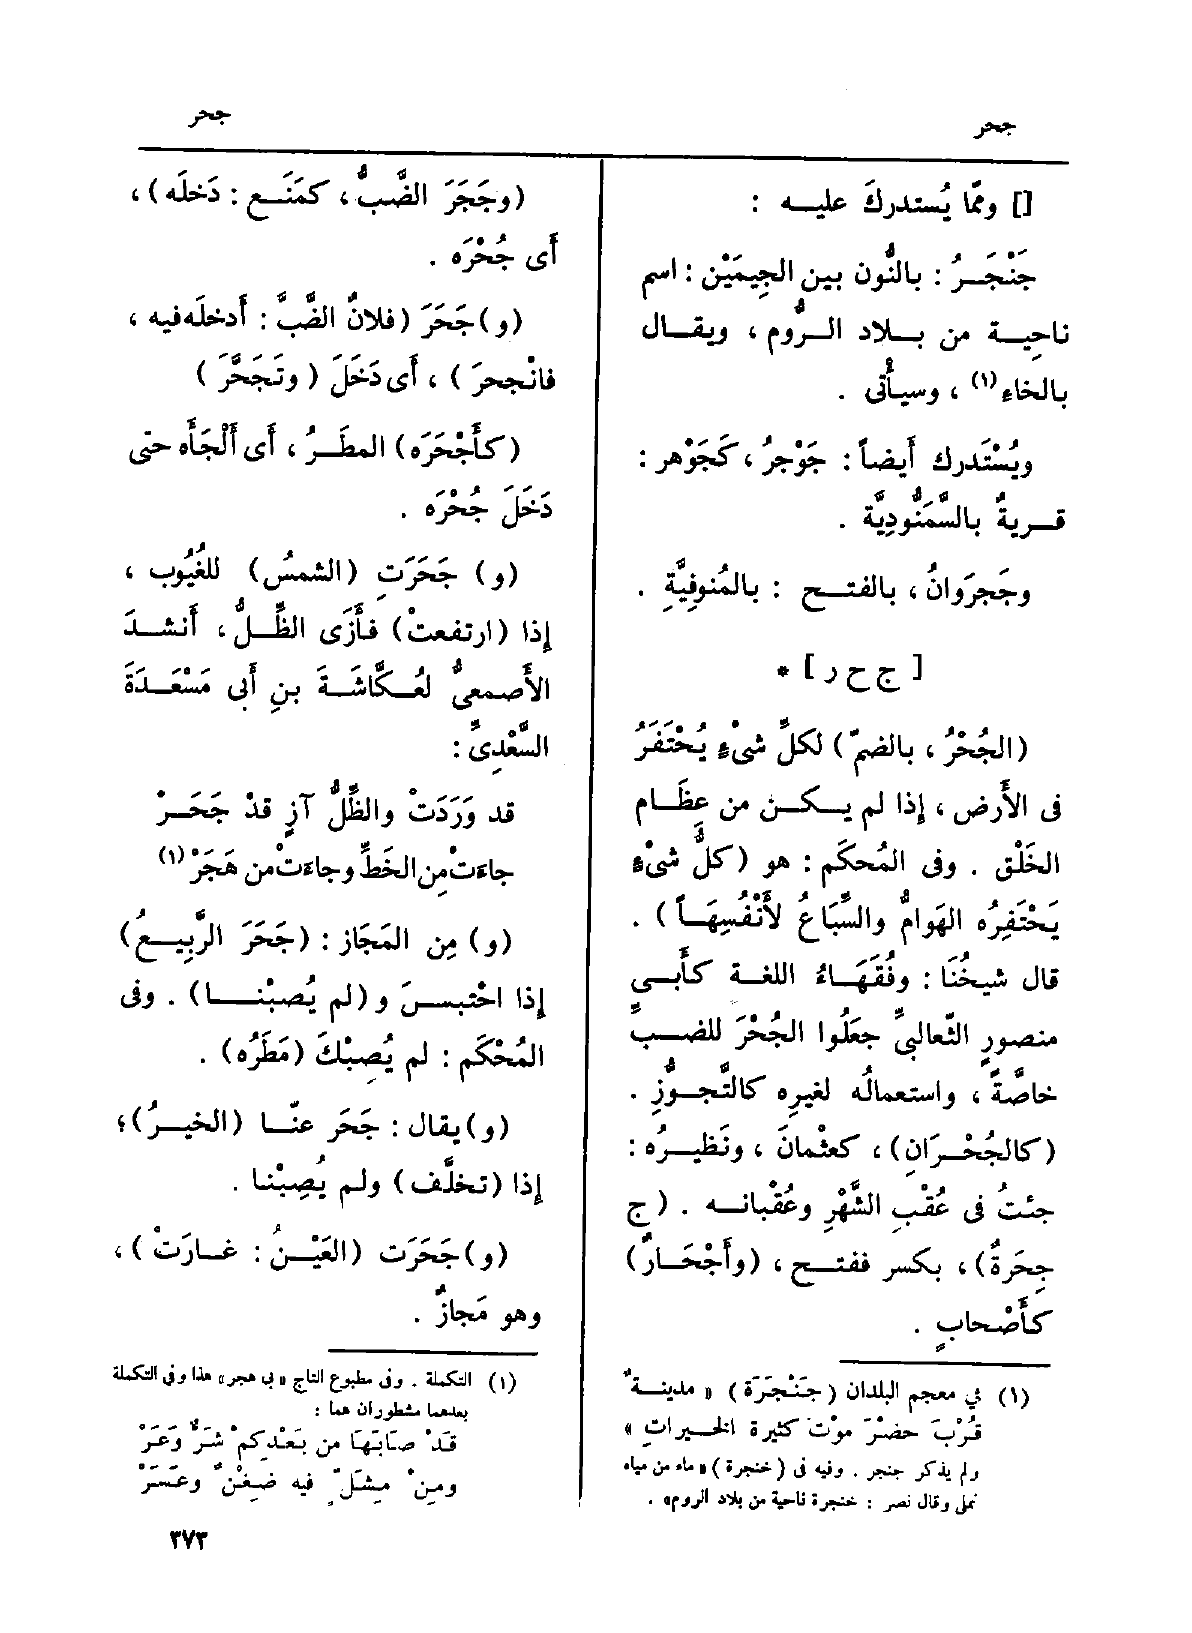 جحر
جحر
[] ومّما يُستدركَ عليـــه :
جَنْجَـــرُ : بالنُّون بين الجِيمَيْن : اسم
ناحِيــة من بــلاد الــرُّوم ، ويقــال
بالخاءِ (١) ، وسيأْتى .
ويُسْتَدرك أَيضاً : جَوْجرُ ، كَجَوْهر :
قــريةٌ بالسَّمَنُّودِيَّة .
وجَجرَوانُ ، بالفتــح : بالمُنوفِيَّةِ .
[ ج ح ر ] *
(الجُحْرُ ، بالضمّ) لكلِّ شىْءٍ يُحْتَفَرُ
فى الأَرض ، إذا لم يكــن من عِظَــام
الخَلْق . وفى المُحكَم : هو (كلُّ شىْءٍ
يَحْتَفِرُه الهَوامُّ والسِّبَاعُ لأَنْفُسِهَــا) .
قال شيخُنَا : وفُقَهَــاءُ اللغــة كأَبــى
منصورٍ الثّعالبىِّ جعَلُوا الجُحْرَ للضــبِّ
خاصَّةً ، واستعمالُه لغيرِه كالتَّجــوُّزِ .
(كالجُحْــرَانِ) ، كعثْمانَ ، ونَظيــرُه :
جئتُ فى عُقْبِ الشَّهْرِ وعُقْبانــه . (ج
جِحَرةٌ) ، بكسر ففتــح ، (وأَجْحَــارٌ)
كأَصْحابٍ .
(١) في معجم البلدان (جَنْجَرَة) « مدينــةٌ
قُرْبَ حضْرَ مَوْت كثيرة الخــيرات »
ولم يذكر جنجر . وفيه فى (خنجرة) « ماء من مياه
نملى وقال نصر : خنجرة ناحية من بلاد الروم» .
(وجَجَرَ الضَّبُّ ، كمَنَــع : دَخلَه) ،
أَى جُحْرَه .
(و) جَحَرَ (فلانٌ الضَّبَّ : أَدخلَه فيه ،
فانْجحرَ ) ، أَى دَخَلَ ( وتَجَحَّرَ )
(كأَجْحَرَه) المطَــرُ ، أَى أَلْجَأَه حتى
دَخَلَ جُحْرَه .
(و) جَحَرَتِ (الشمسُ) للغُيُوب ،
إذا (ارتفعتْ) فأَزَى الظِّــلُّ ، أَنشــدَ
الأَصمعىُّ لعُــكَّاشَــةَ بنِ أَبى مَسْعَــدَةَ
السَّعْدِىِّ :
قد وَرَدَتْ والظِّلُّ آزٍ قدْ جَحَــرْ
جاءَتْ مِن الخَطِّ وجاءَتْ من هَجَرْ (١)
(و) مِن المَجَاز : (جَحَرَ الرَّبِيــعُ)
إذا احْتبــسَ و (لم يُصبْنــا) . وفى
المُحْكَم : لم يُصِبْكَ (مَطَرُه) .
(و) يقال : جَحَر عنّــا (الخيــرُ) ؛
إذا (تخلَّف) ولم يُصِبْنــا .
(و) جَحَرَت (العَيْــنُ : غــارَتْ) ،
وهو مَجازٌ .
(١) التكملة . وفى مطبوع التاج « بي هجر » هذا وفى التكملة
بعدهما مشطوران هما :
قَدْ صابَهَا من بَعْدِكم شَرٌّ وَعَرْ
ومِنْ مِشَلّ فيه ضِغْنٌ وعَسَرْ
٣٧٣